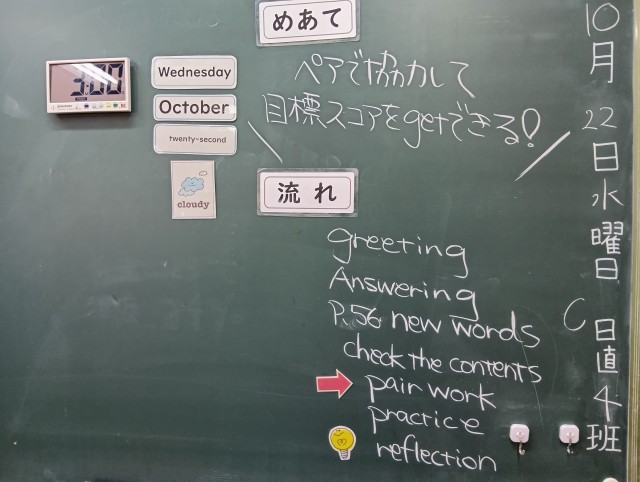 めあて
ペアで協力して
目標スコアをgetできる!
3:00
Wednesday
October
twenty-second
cloudy
流れ
greeting
Answering
P.56 new words
check the contents
pair work
practice
reflection
10月22日水曜日
日直4班